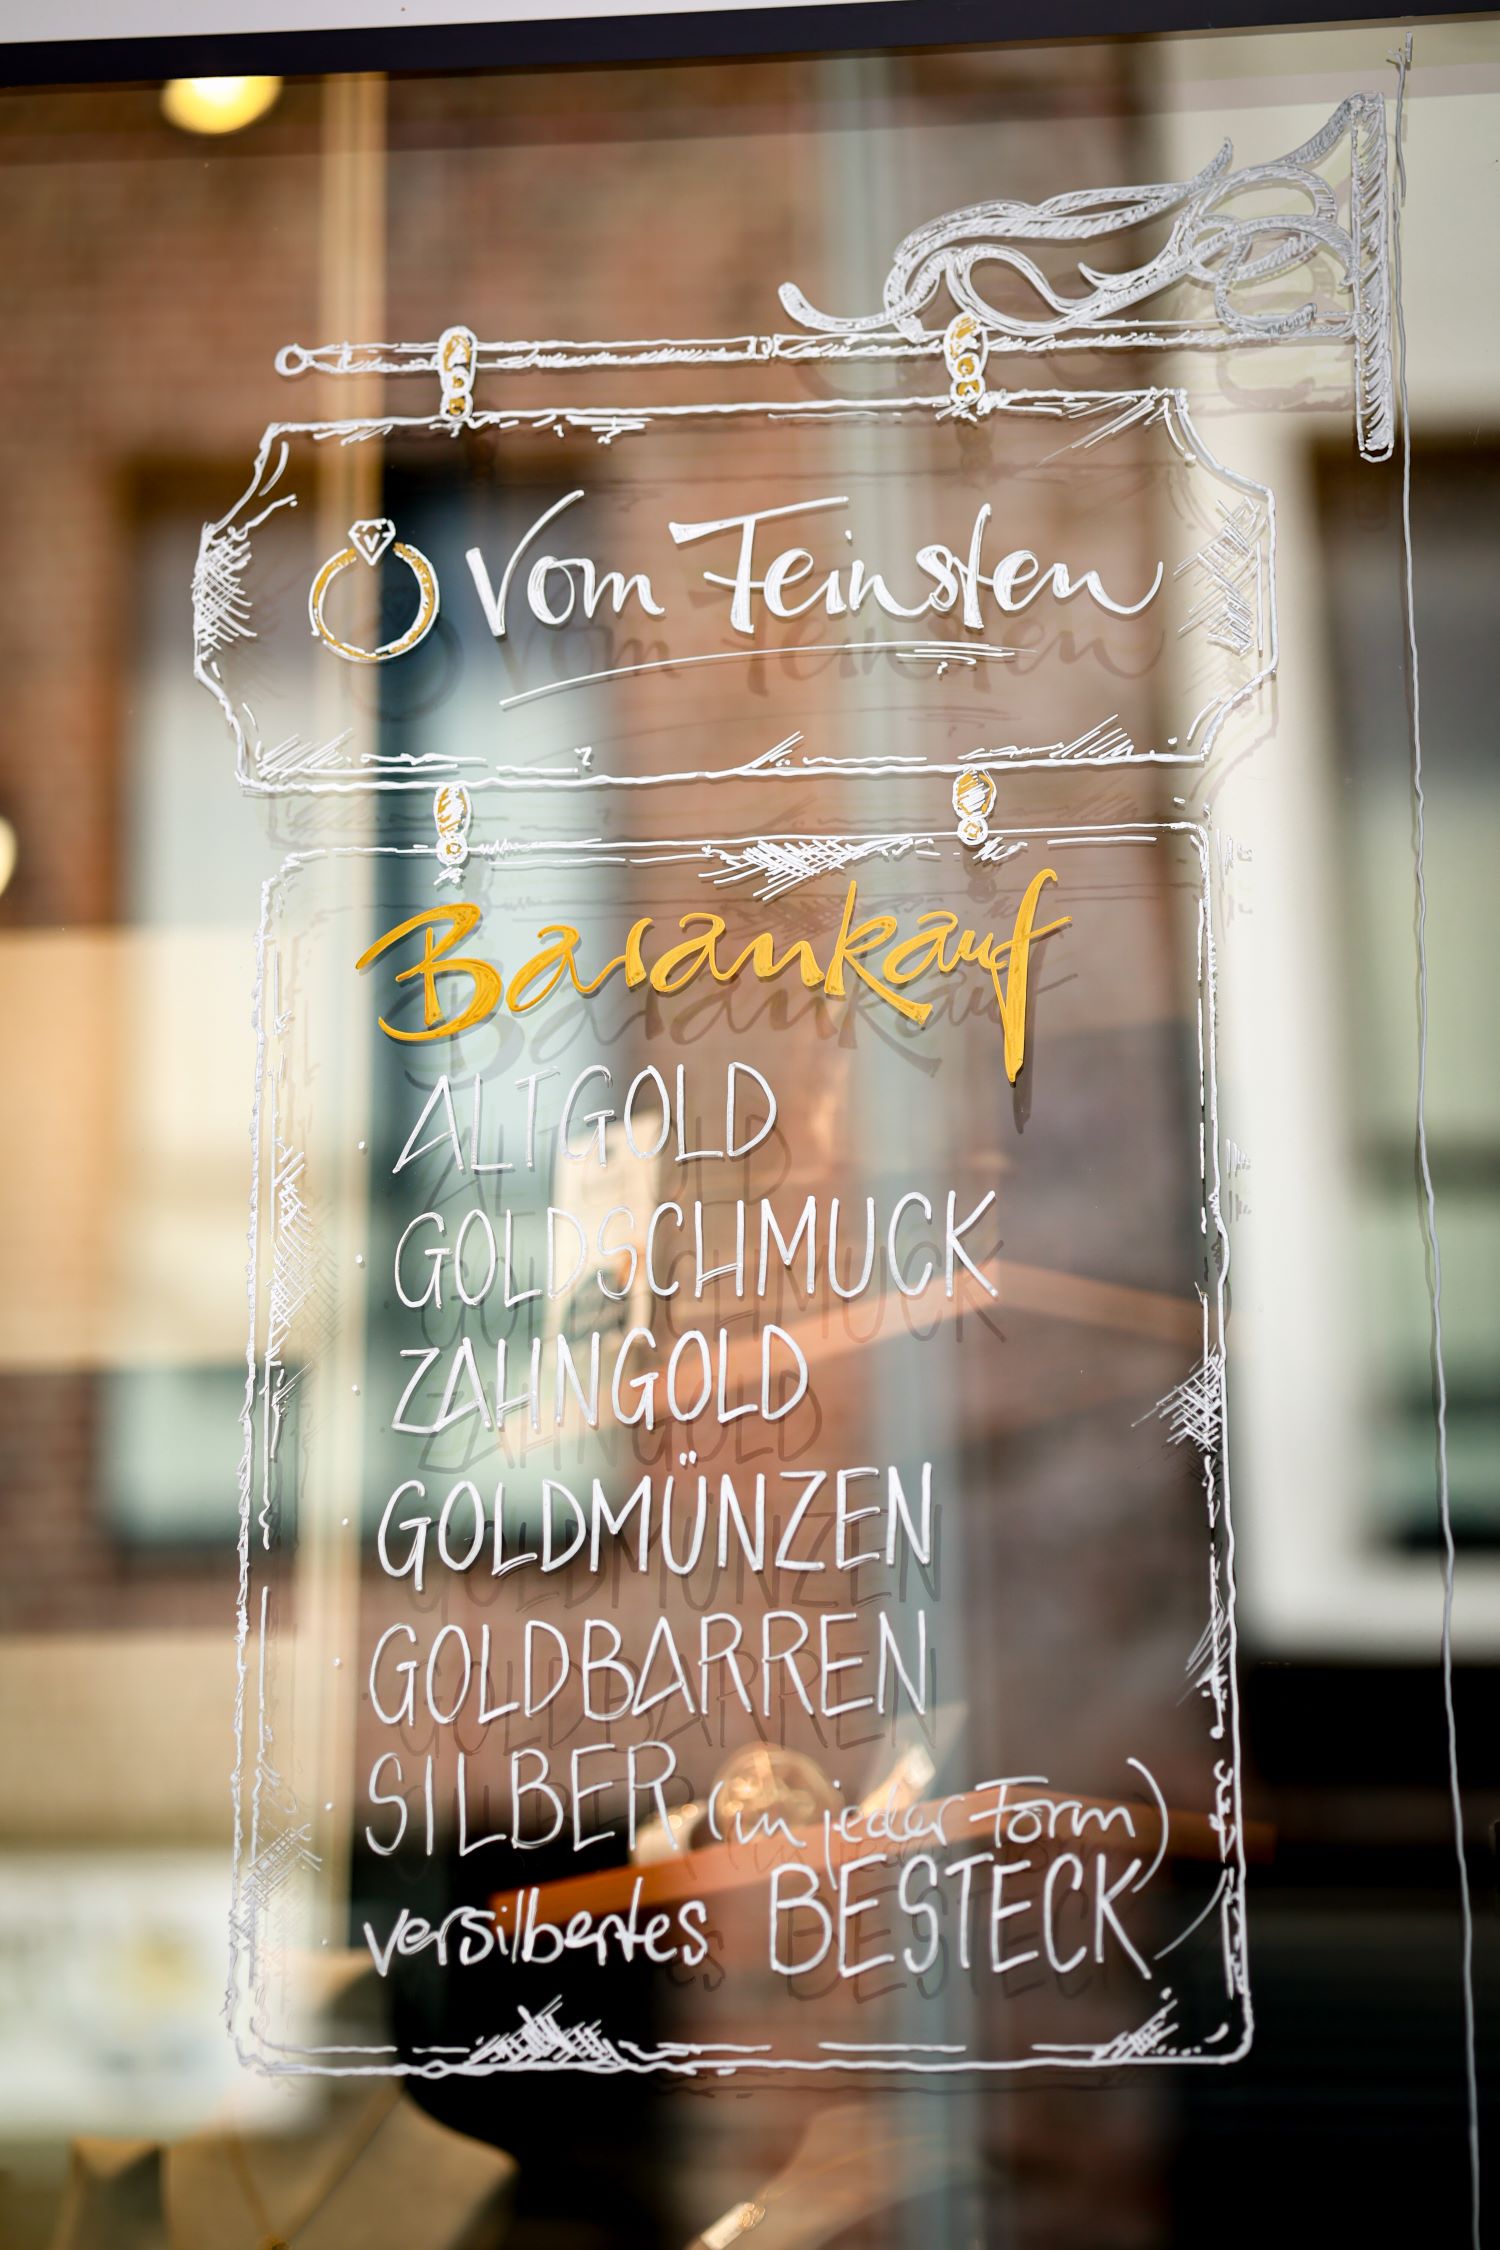 Vom Feinsten
Barankauf
ALTGOLD
GOLDSCHMUCK
ZAHNGOLD
GOLDMÜNZEN
GOLDBARREN
SILBER (in jeder Form)
versilbertes BESTECK